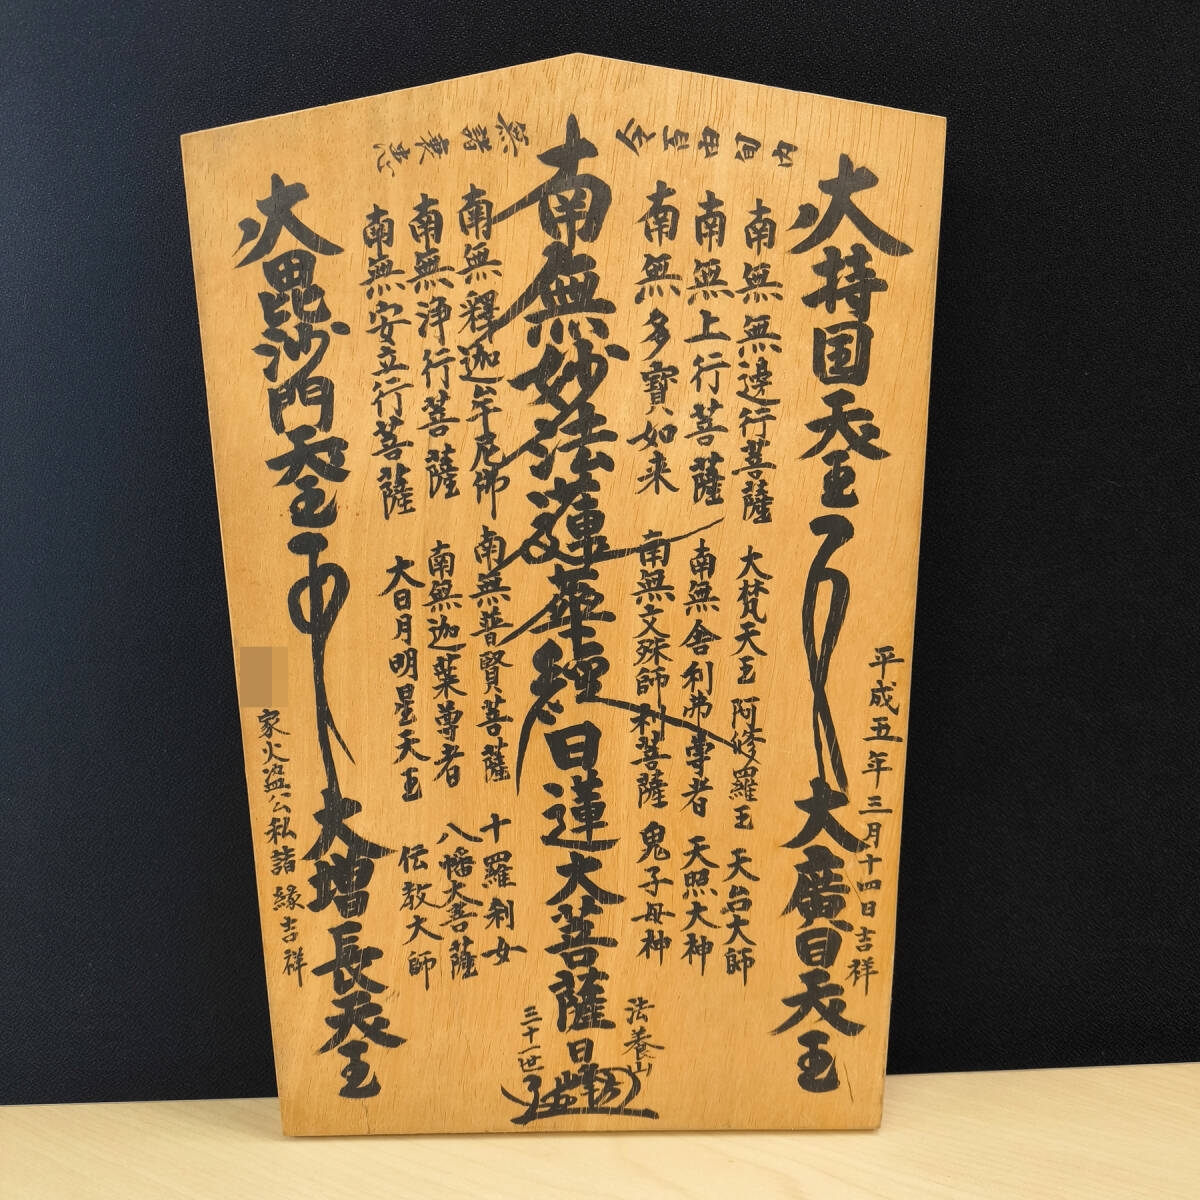 平成五年三月十四日吉祥
大持国天王
大廣目天王
南無無邊行菩薩
大梵天王
阿修羅王
天台大師
南無上行菩薩
南無舎利弗尊者
天照大神
南無多寶如来
南無文殊師利菩薩
鬼子母神
南無妙法蓮華経
日蓮大菩薩
法養山
三十一世
南無釋迦牟尼佛
南無普賢菩薩
十羅刹女
南無浄行菩薩
南無迦葉尊者
八幡大菩薩
南無安立行菩薩
大日月明星天王
伝教大師
大毘沙門天王
大増長天王
家火盗公私諸縁吉祥